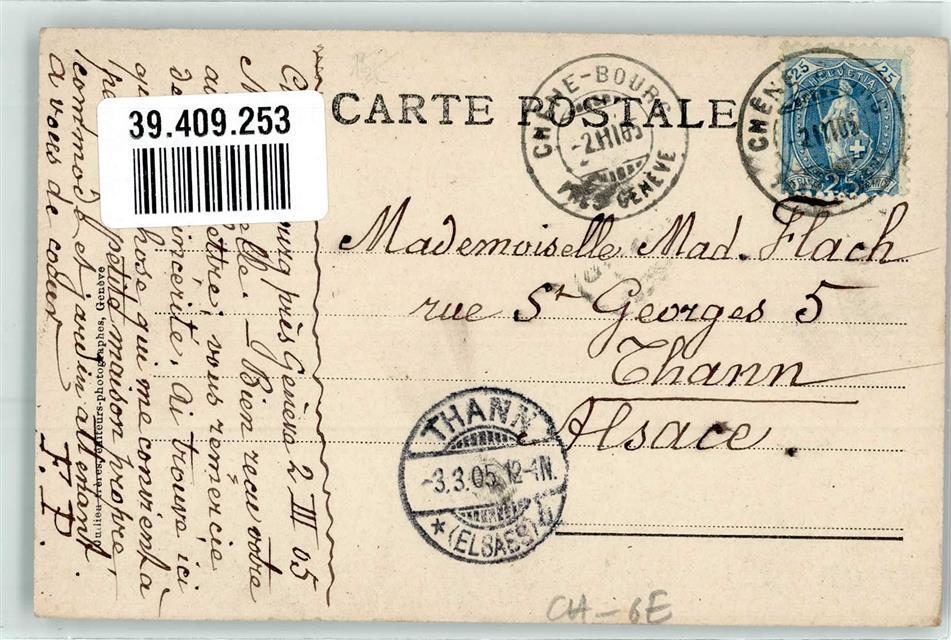 CARTE POSTALE
39.409.253
CHÊNE-BOURG
-2 III 05
PRÈS GENÈVE
CHÊNE
2 III 05
25 HELVETIA 25
25
Mademoiselle Mad. Flach
rue St Georges 5
Thann
Alsace.
THANN
-3.3.05. 12-1N.
* (ELSAES)
près Genève 2 III 05
Bien reçu votre
vous remercie
sincérité. Ai trouvé ici
chose qui me convient à
petite maison propre,
commode et jardin attenant.
à vous de cœur
F. P.
éditeurs-photographes, Genève
CH-6E